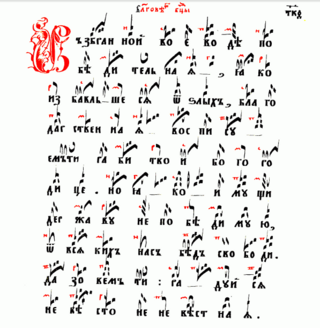 Възбран ной во е во дѣ по
бѣ ди тель на ѧ , ꙗ ко
из бавль ше сѧ ѿ ѕлыхъ, бла го
дар ствен на ѧ вос пи су
емъ ти ра би тво и бо го ро
ди це . но ꙗ ко и му щи
дер жа ву не по бѣ ди му ю,
ѿ всѧ кихъ насъ бѣдъ сво бо ди.
да зо вемъ ти : ра дуй сѧ
не вѣ сто не не вѣст на ѧ .